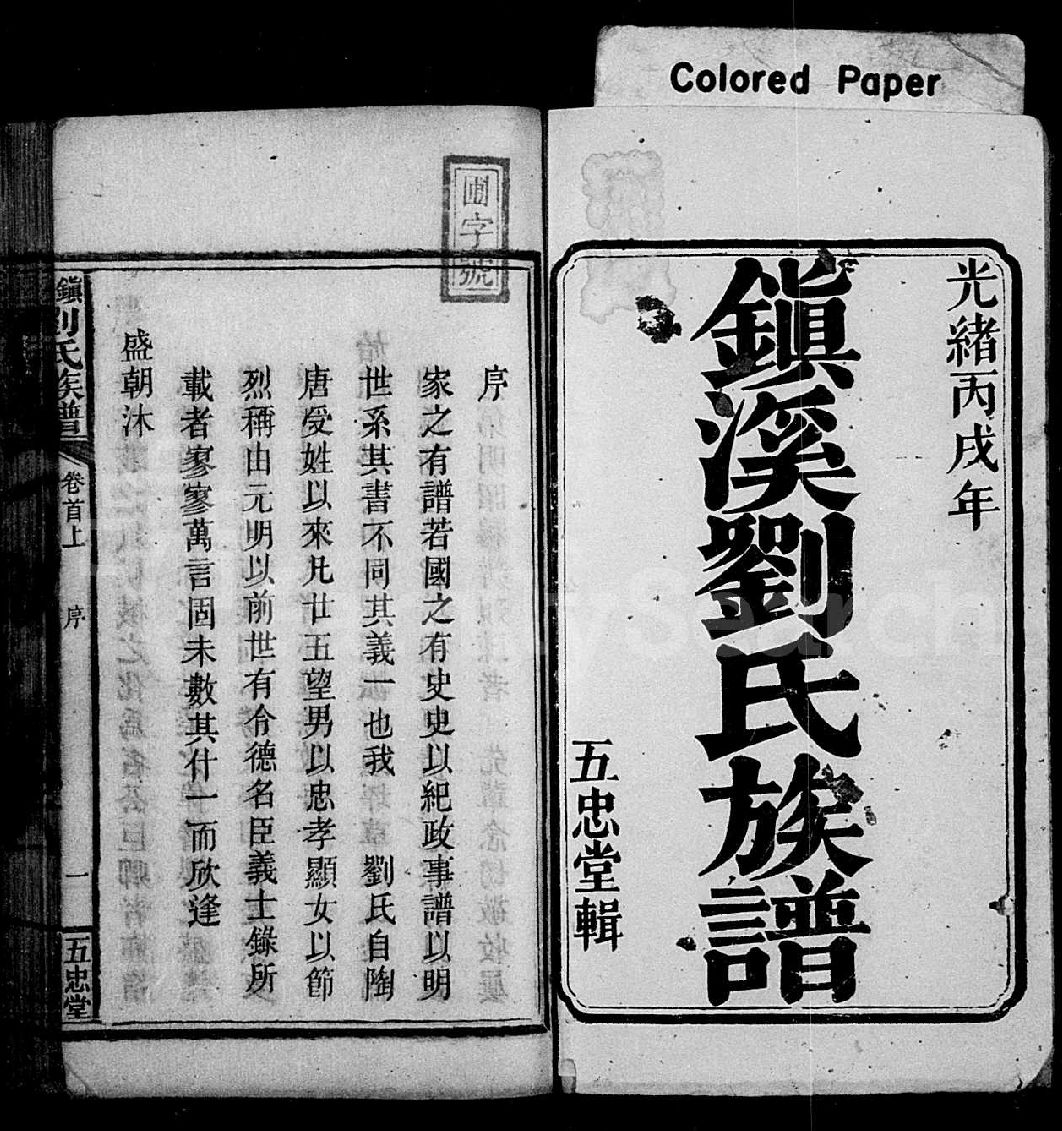 Colored Paper
光緒丙戌年
鎭溪劉氏族譜
五忠堂輯
圃字號
序
家之有譜若國之有史史以紀政事譜以明
世系其書不同其義一也我劉氏自陶
唐受姓以來凡廿五望男以忠孝顯女以節
烈稱由元明以前世有令德名臣義士錄所
載者寥寥萬言固未數其什一而欣逢
盛朝沐
鎭 劉氏族譜
卷首上
序
一
五忠堂